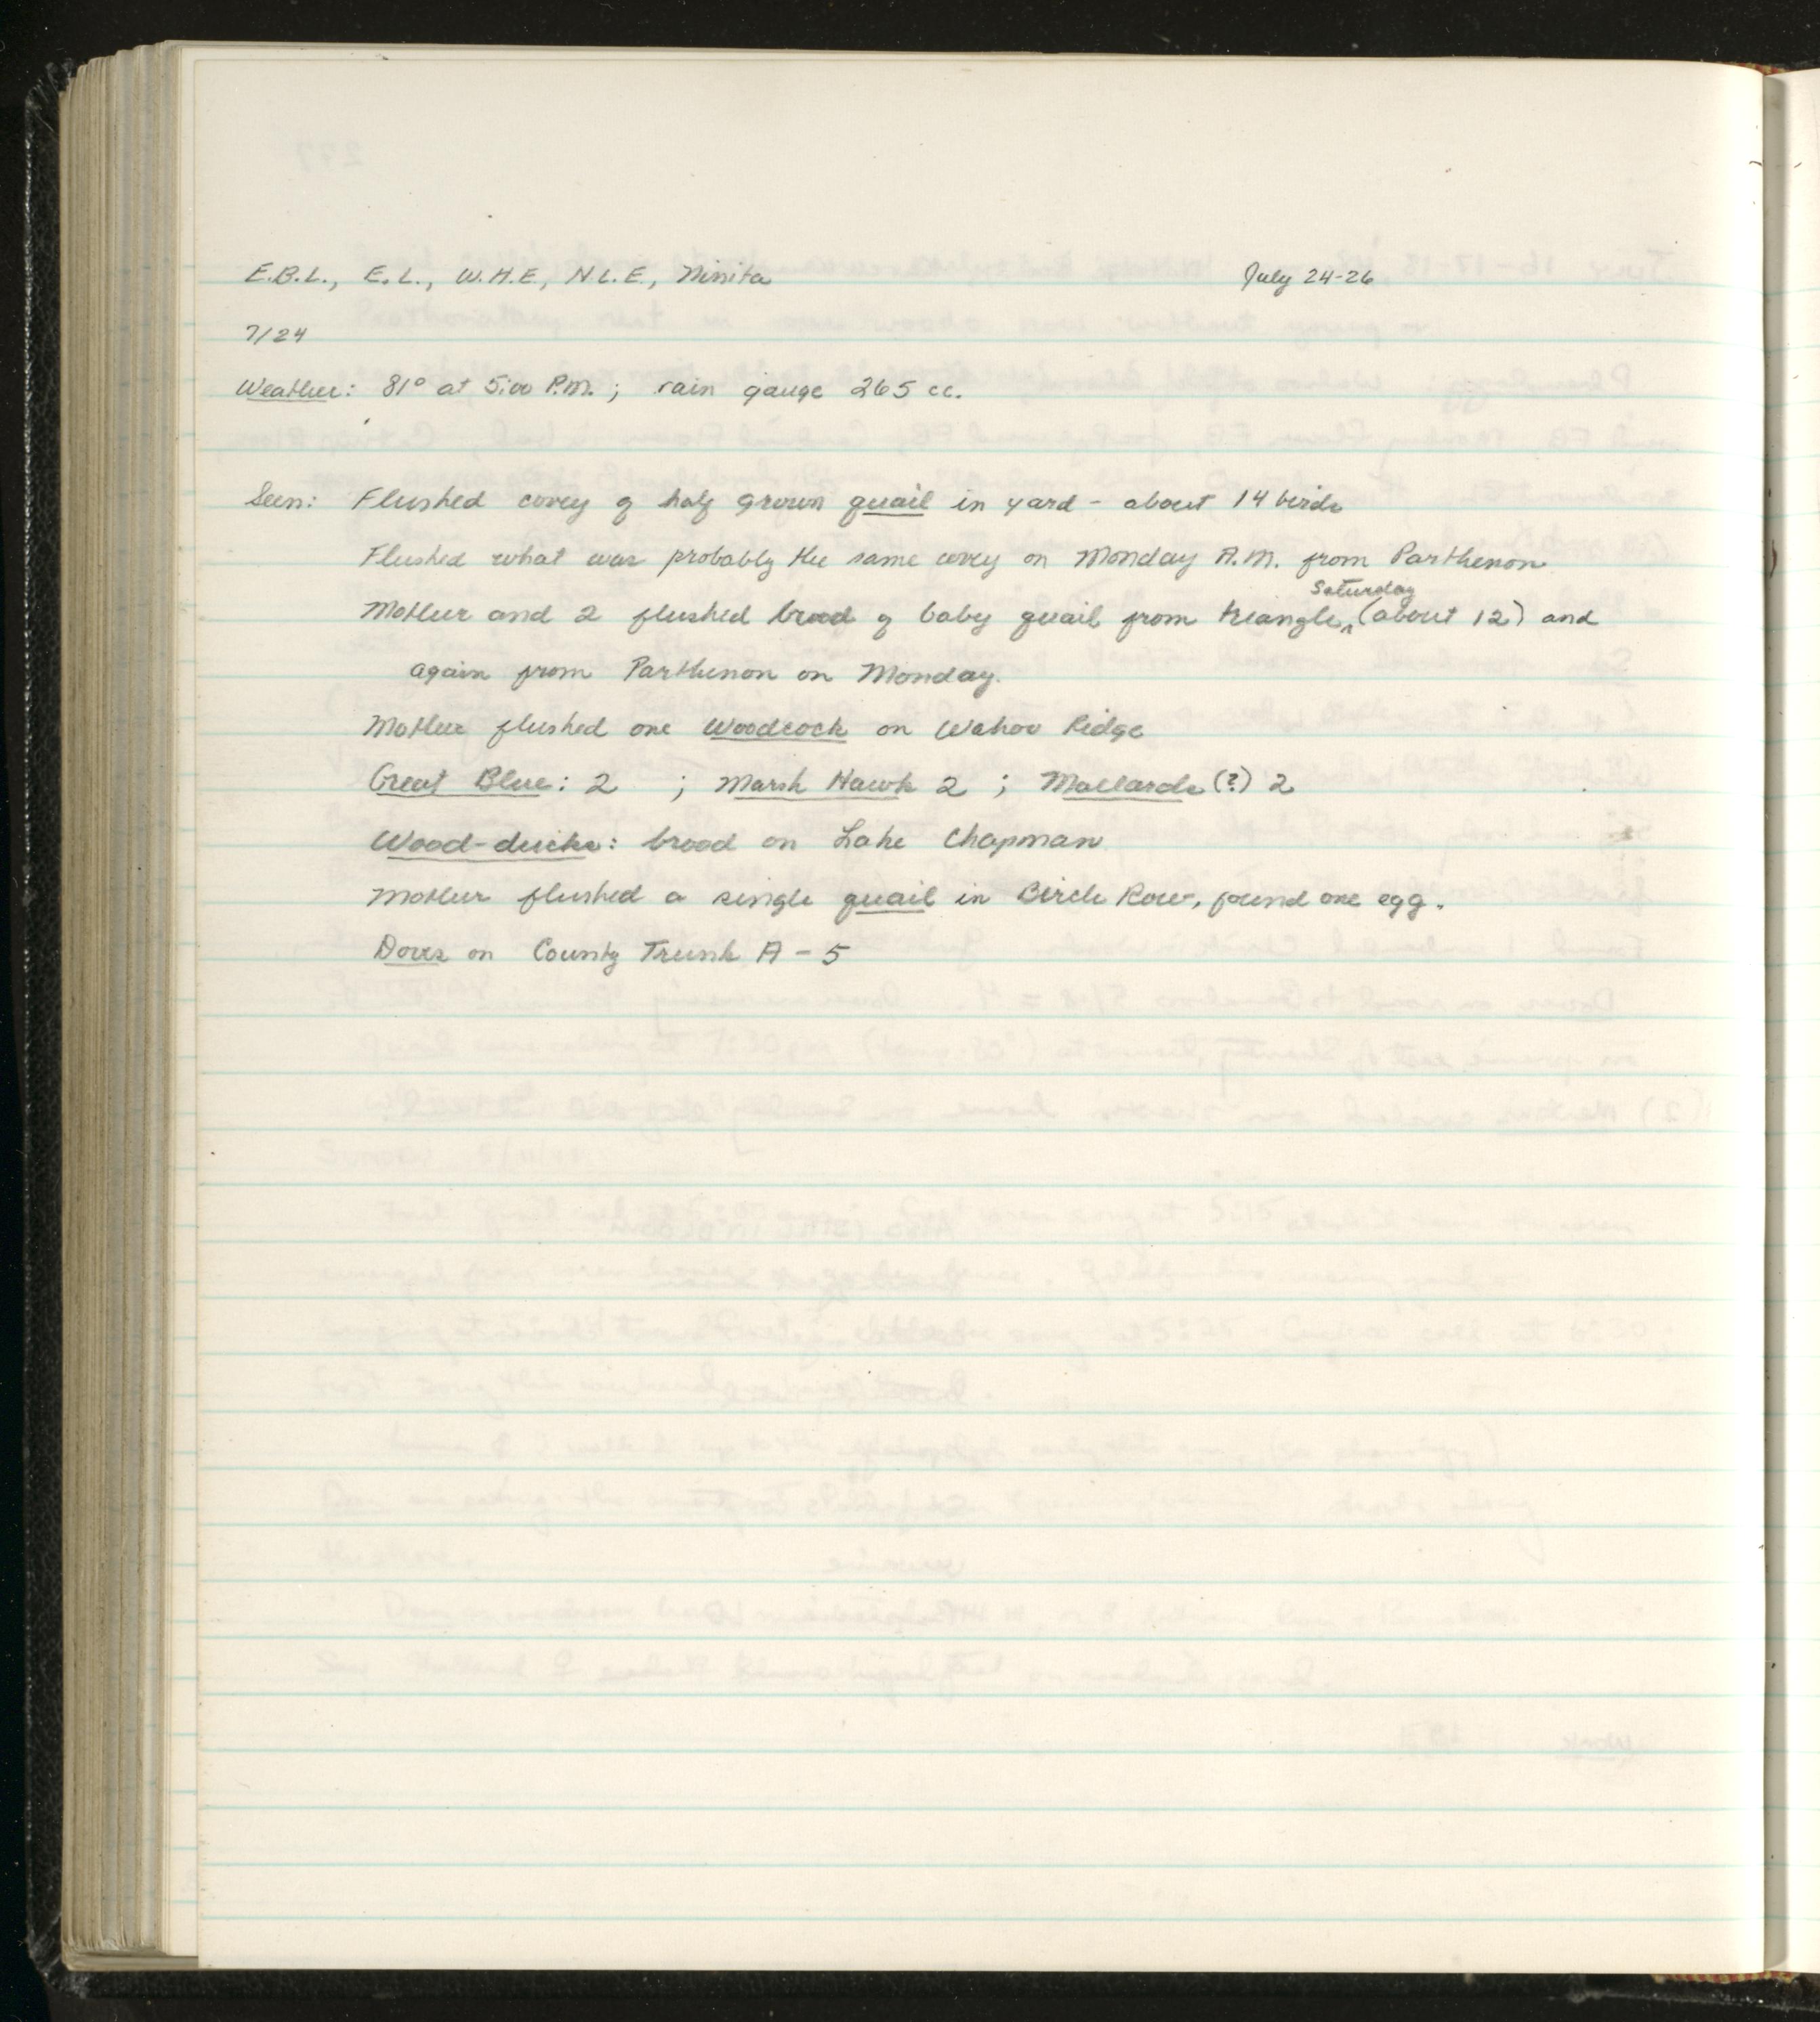 E.B.L., E.L., W.H.E., N.L.E., Ninita July 24-26
7/24
Weather: 81° at 5:00 P.M. ; rain gauge 265 cc.
Seen: Flushed covey of half grown quail in yard - about 14 birds
Flushed what was probably the same covey on Monday A.M. from Parthenon
Saturday
Mother and 2 flushed brood of baby quail from triangle ^ (about 12) and
again from Parthenon on Monday.
Mother flushed one Woodcock on Wahoo Ridge
Great Blue: 2 ; Marsh Hawk 2 ; Mallards (?) 2
Wood-ducks: brood on Lake Chapman
Mother flushed a single quail in Birch Row, found one egg.
Doves on County Trunk A - 5